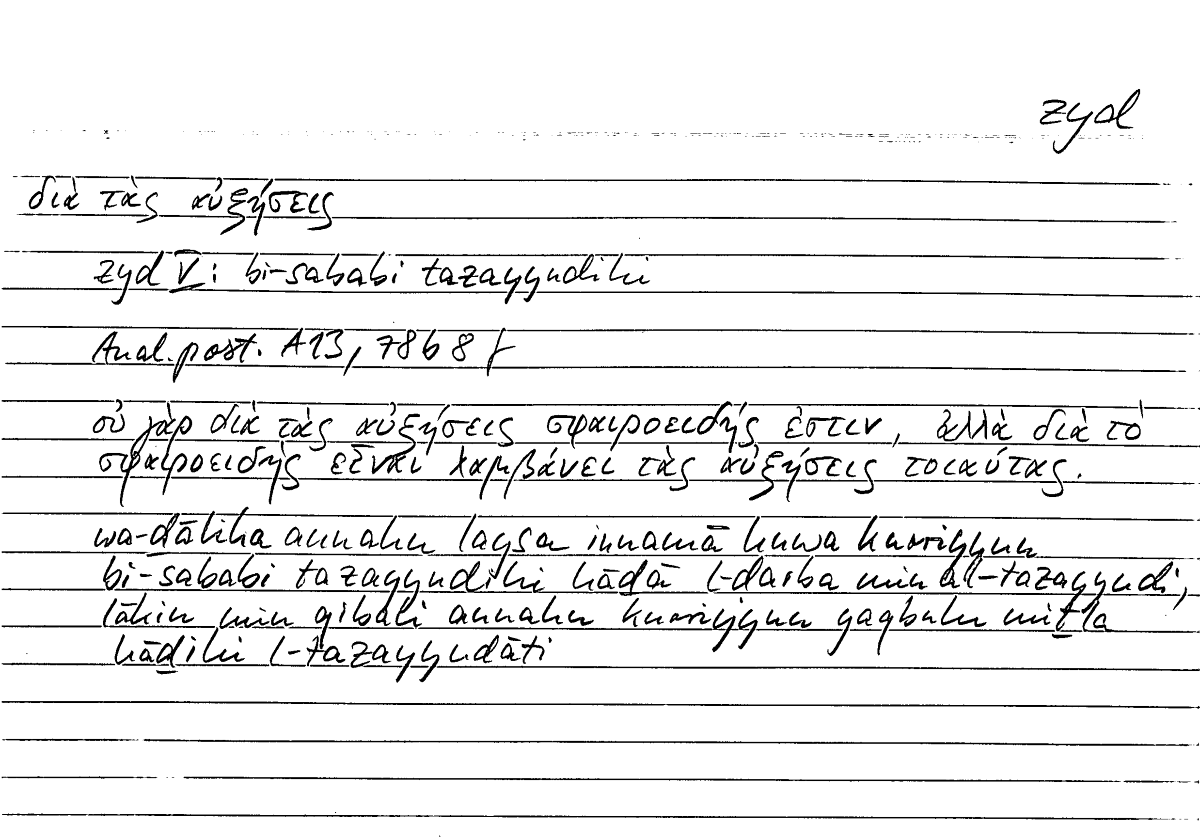 zyd
διὰ τὰς αὐξήσεις
zyd V: bi-sababi tazayyudihi
Anal. post. A13, 78b 8 f
οὐ γὰρ διὰ τὰς αὐξήσεις σφαιροειδής ἐστιν, ἀλλὰ διὰ τὸ
σφαιροειδὴς εἶναι λαμβάνει τὰς αὐξήσεις τοιαύτας.
wa-ḏālika annahu laysa innamā huwa kurriyyun
bi-sababi tazayyudihi hāḏā l-ḍarba min al-tazayyudi,
lākin min qibali annahu kurriyyun yaqbalu miṯla
hāḏihi l-tazayyudāti